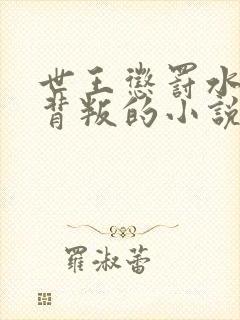 世王懲罰水
背叛的小說
羅淑蕾